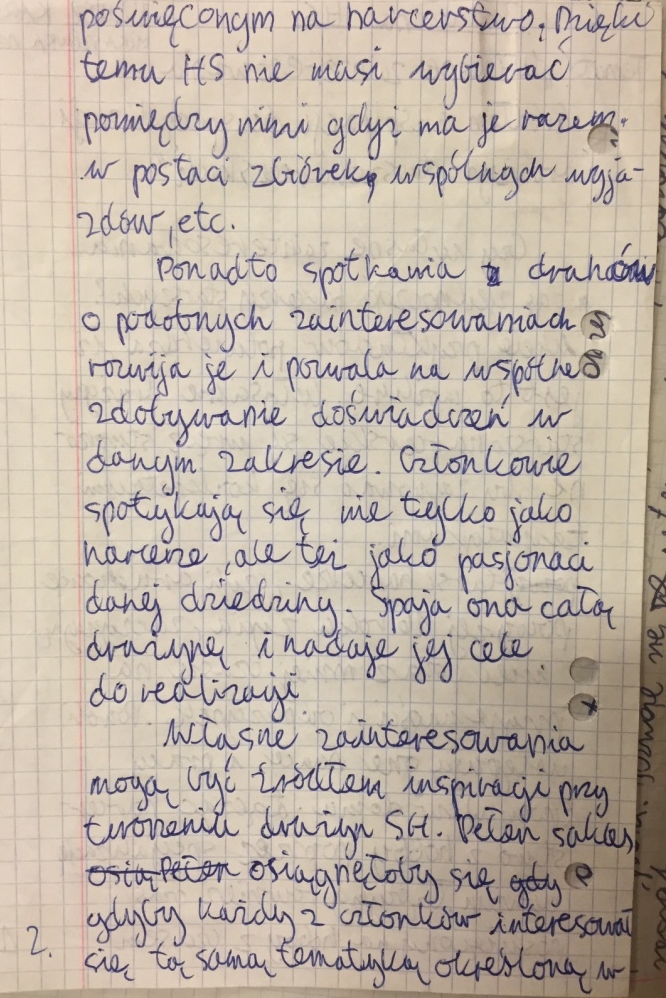 poświęconym na harcerstwo. Dzięki
temu HS nie musi wybierać
pomiędzy nimi gdyż ma je razem.
w postaci zbiórek, wspólnych wyja-
zdów, etc.
Ponadto spotkania druhów
o podobnych zainteresowaniach
rozwija je i pozwala na wspólne
zdobywanie doświadczeń w
danym zakresie. Członkowie
spotykają się nie tylko jako
harcerze, ale też jako pasjonaci
danej dziedziny. Spaja ona całą
drużynę i nadaje jej cele
do realizacji
Własne zainteresowania
mogą być źródłem inspiracji przy
tworzeniu drużyn SH. Pełen sukces
osiągnęłoby się gdy
gdyby każdy z członków interesował
2. się tą samą tematyką określoną w-